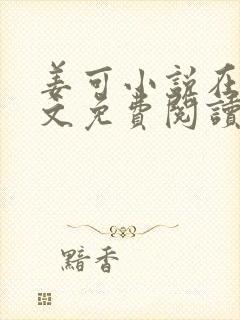 姜可小说在
文免費閱讀
黯香